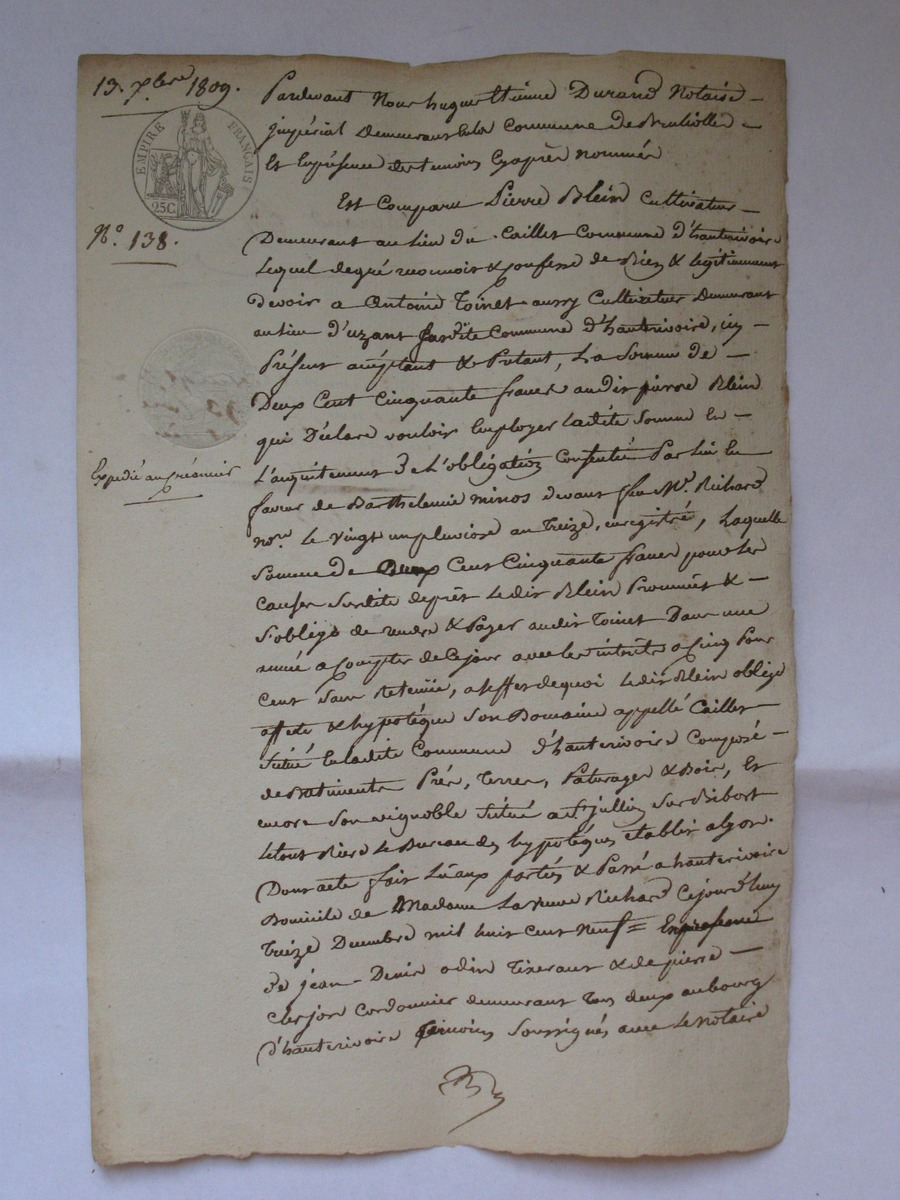 13. Xbre 1809.
EMPIRE FRANÇAIS
25C
No. 138.
Expedié au créancier
Pardevant Nous hugues Etienne Durand Notaire
impérial Demeurant En la Commune de
Et En présence des temoins Cyaprès nommés
Est Comparu Pierre Blein Cultivateur
Demeurant au lieu du Caillet Commune d'hauterivoire
Lequel de gré reconnoit & Confesse de Bien & légitimement
devoir a Antoine Toinet aussy Cultivateur Demeurant
au lieu d'uzant susdite Commune d'hauterivoire, icy
Présent acceptant & Prétant, La Somme de
Deux Cent Cinquante francs audit pierre Blein
qui Déclare vouloir Employer Ladite Somme En
L'acquittement de L'obligation Consentie Par lui En
faveur de Barthelemie minos devant feu Me. Richard
nore. le vingt un pluviose an Treize, enregistré, Laquelle
Somme de Deux Cent Cinquante francs pour les
causes Susdite de prêt Ledit Blein Prommet &
S'oblige de rendre & Payer audit Toinet Dans une
année a Compter de Ce jour avec les intérêts a Cinq Pour
Cent Sans Retenüe, a l'effet de quoi Ledit Blein oblige
affecte & hypotéque Son Domaine appellé Caillet
Situé En ladite Commune d'hauterivoire Composé
de Batiments Prés, Terres, Paturages & Bois, Et
encore Son vignoble Situé a St jullien Sur Bibost
Le tout Riere Le Bureau des hypotéques établis a lyon.
Dont acte fait Lu aux parties & Passé a hauterivoire
Domicile de Madame La veuve Richard Ce jourd'huy
Treize Decembre mil huit Cent Neuf = En présence
de jean-Denis odin Tixerant & de pierre
clerjon Cordonnier demeurant Tous deux au bourg
d'hauterivoire Témoins Soussignés avec Le Notaire